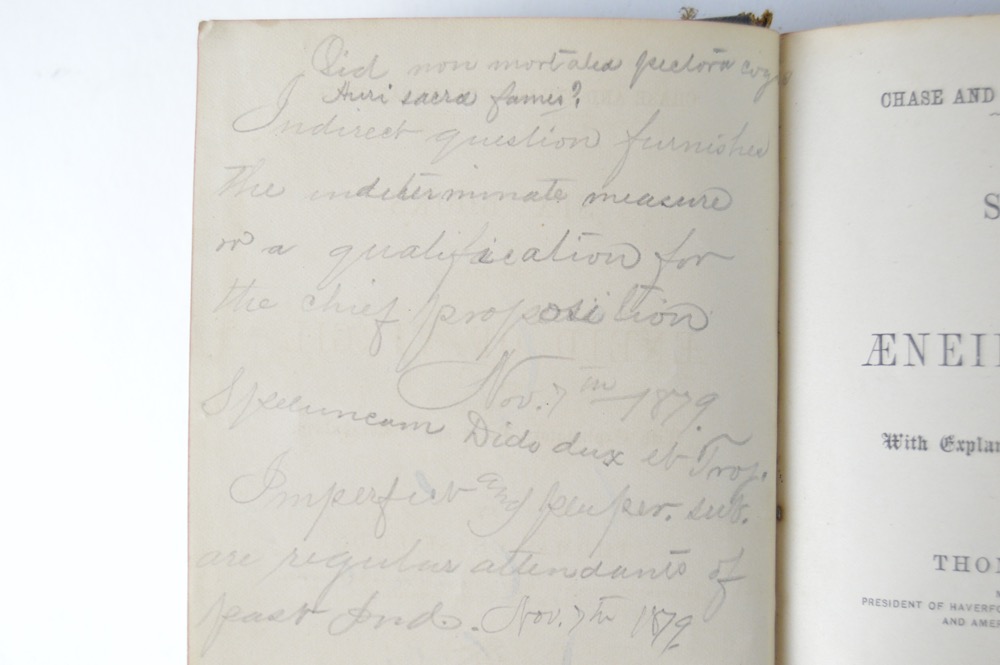 Quid non mortalia pectora cogis
Auri sacra fames?
Indirect question furnishes
the indeterminate measure
or a qualification for
the chief proposition
Nov. 7th 1879.
Speluncam Dido dux et Troj.
Imperfect and pluper. sub.
are regular attendants of
past Ind. Nov. 7th 1879.
CHASE AND
S
ÆNEI
With Explan
THOM
PRESIDENT OF HAVERFO
AND AMER